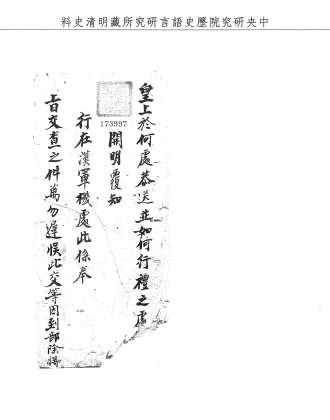 中央研究院歷史語言研究所藏明清史料
皇上於何處恭送並如何行禮之處
173997
開明覆知
行在漢軍機處此係奉
旨交查之件萬勿遲悞此交等因到部除將